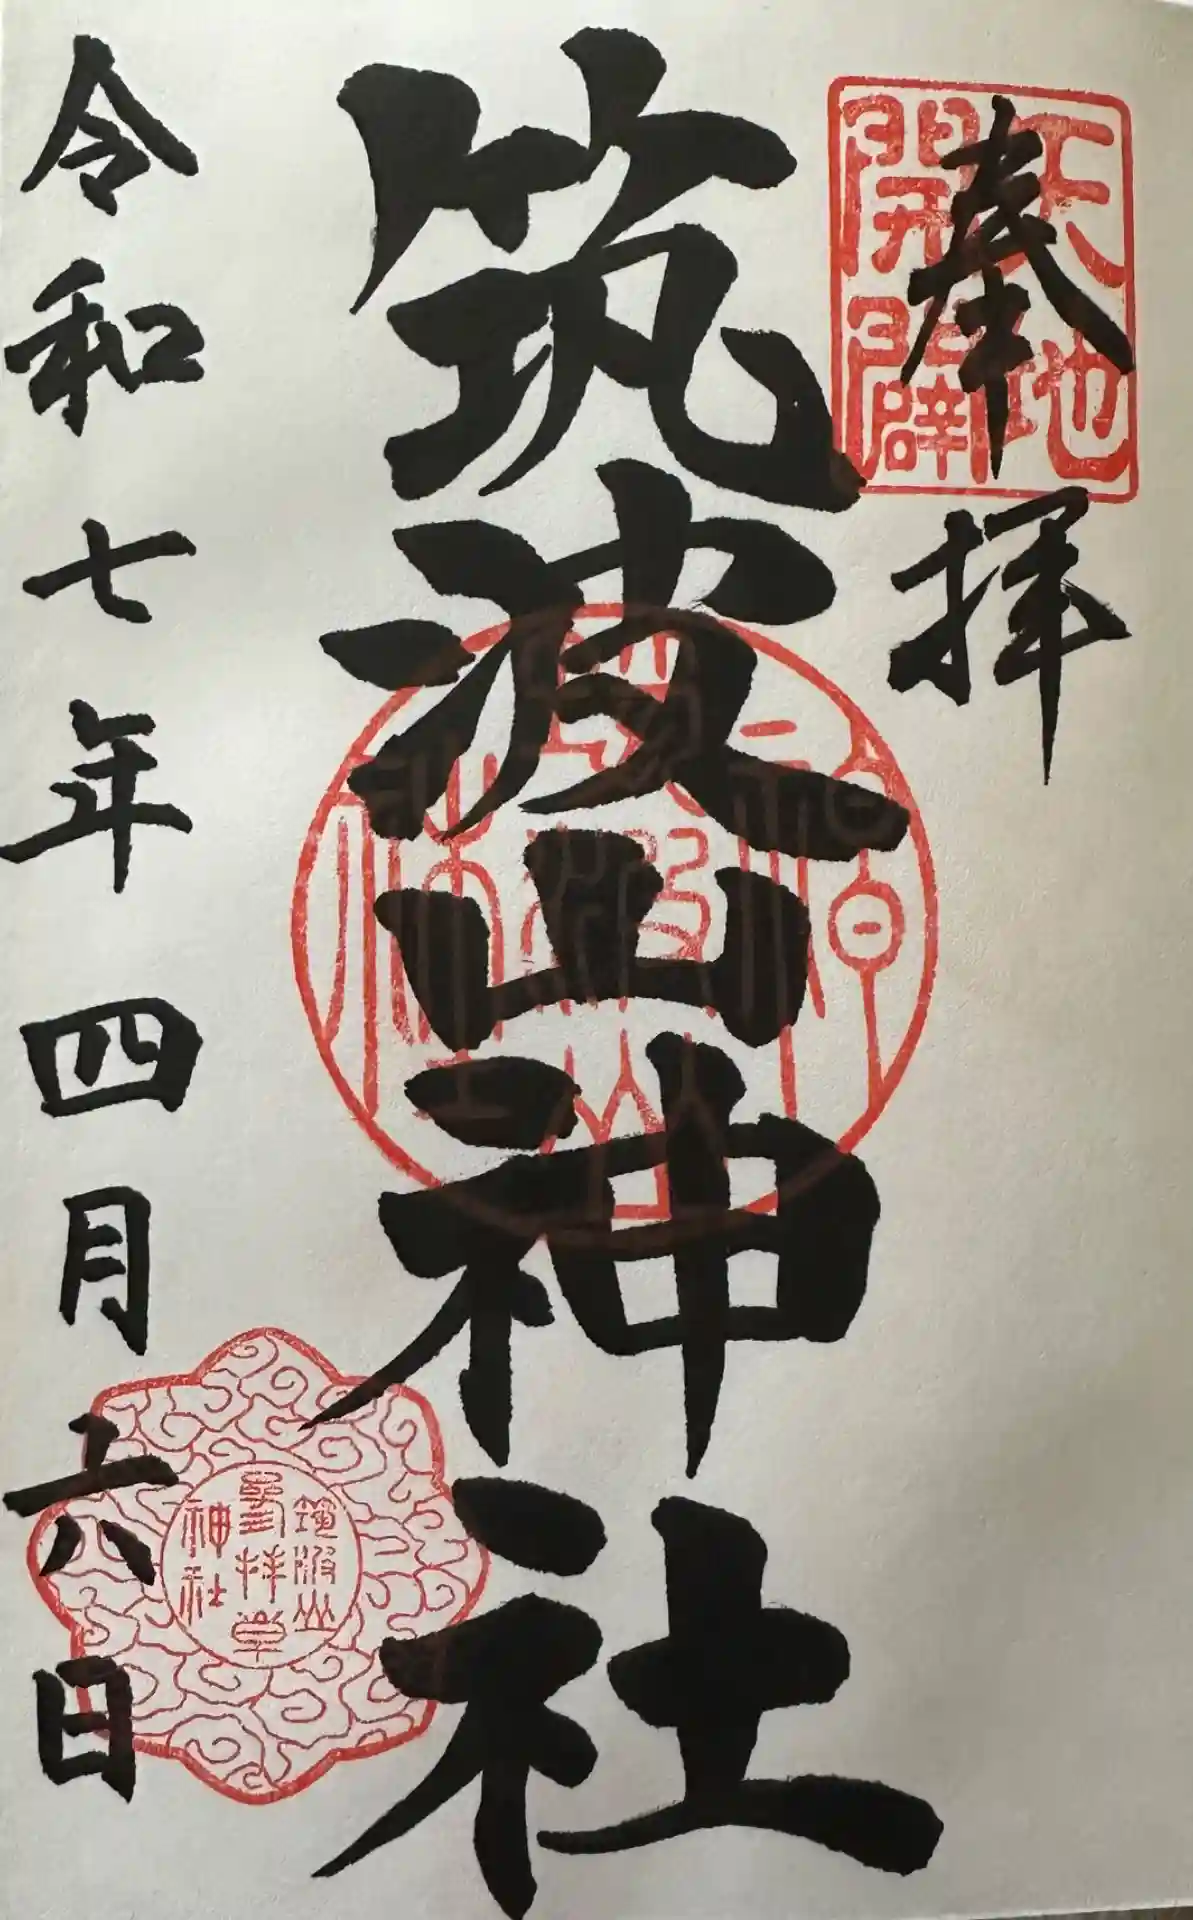 奉拝
天地
開闢
筑波山神社
令和七年四月六日
筑波山
参拝章
神社